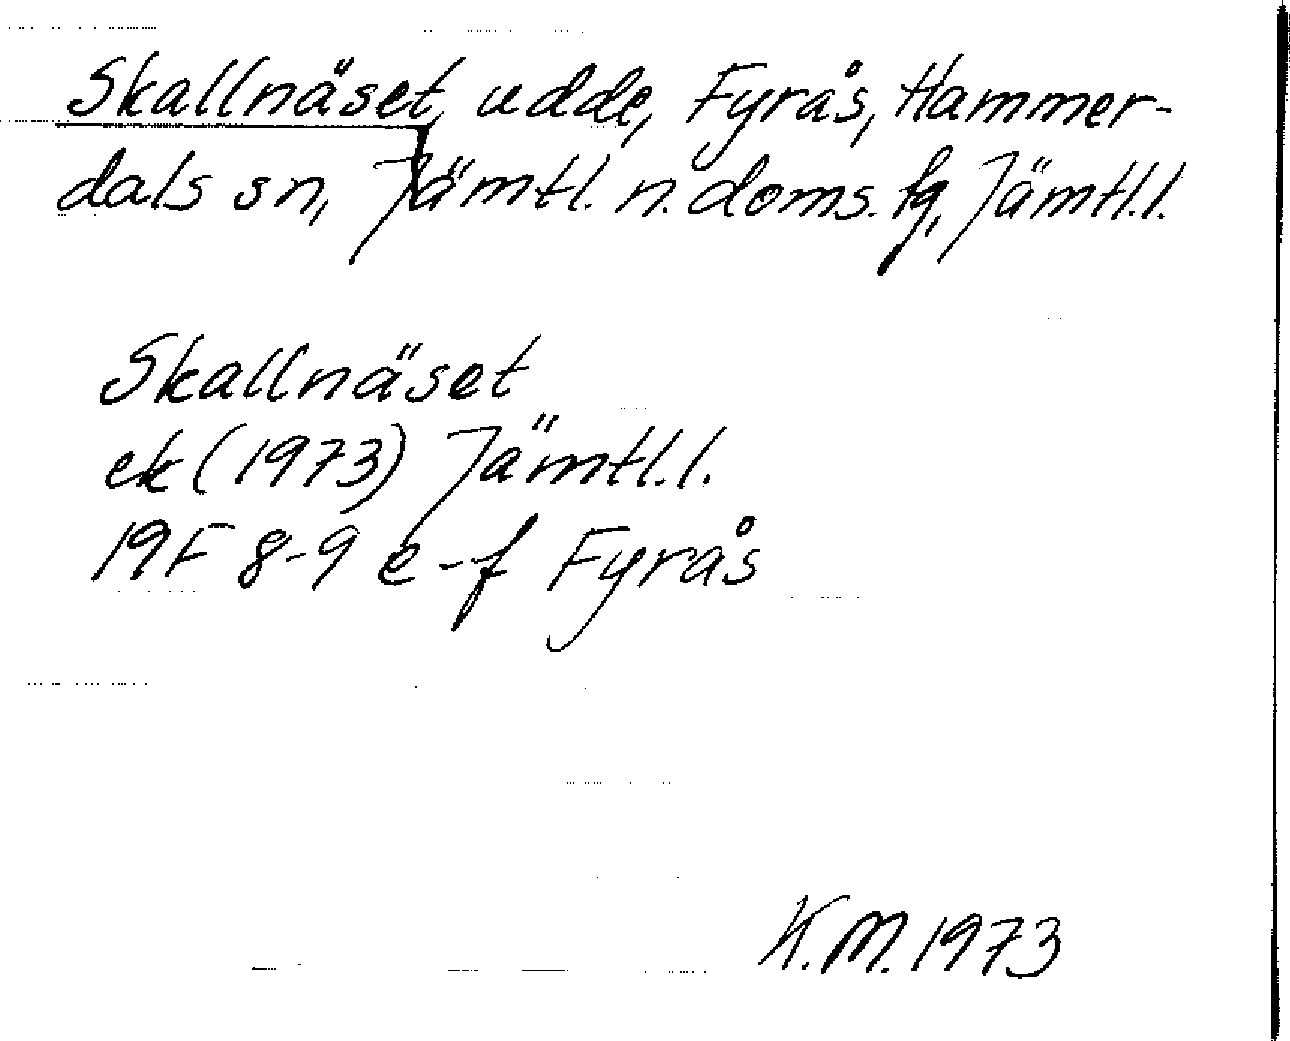 Skallnäset, udde, Fyrås, Hammer-
dals sn, Jämtl. n. doms. fg, Jämtl.l.
Skallnäset
ek (1973) Jämtl.l.
19F 8-9 e-f Fyrås
K.M. 1973